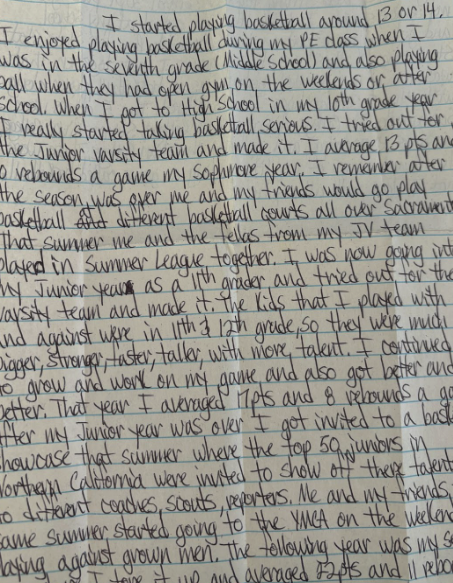 I started playing basketball around 13 or 14.
I enjoyed playing basketball during my PE class when I
was in the seventh grade (Middle School) and also playing
ball when they had open gym on the weekends or after
school. When I got to High School in my 10th grade year
I really started taking basketball serious. I tried out for
the Junior varsity team and made it. I average 13 pts and
0 rebounds a game my sophmore year. I remember after
the season was over me and my friends would go play
basketball different basketball courts all over Sacramento
That summer me and the fellas from my JV team
played in Summer League together. I was now going int
my Junior year as a 11th grader and tried out for the
varsity team and made it. The kids that I played with
and against were in 11th & 12th grade, so they were much
bigger, stronger, faster, taller, with more talent. I continued
to grow and work on my game and also got better and
better. That year I averaged 17pts and 8 rebounds a ga
After my Junior year was over I got invited to a bask
showcase that summer where the top 50 juniors in
Northern California were invited to show off there talent
to different coaches, scouts, reporters. Me and my friends,
same summer started going to the YMCA on the weekend
playing against grown men. The following year was my se
I up and averaged 22pts and 11 rebo